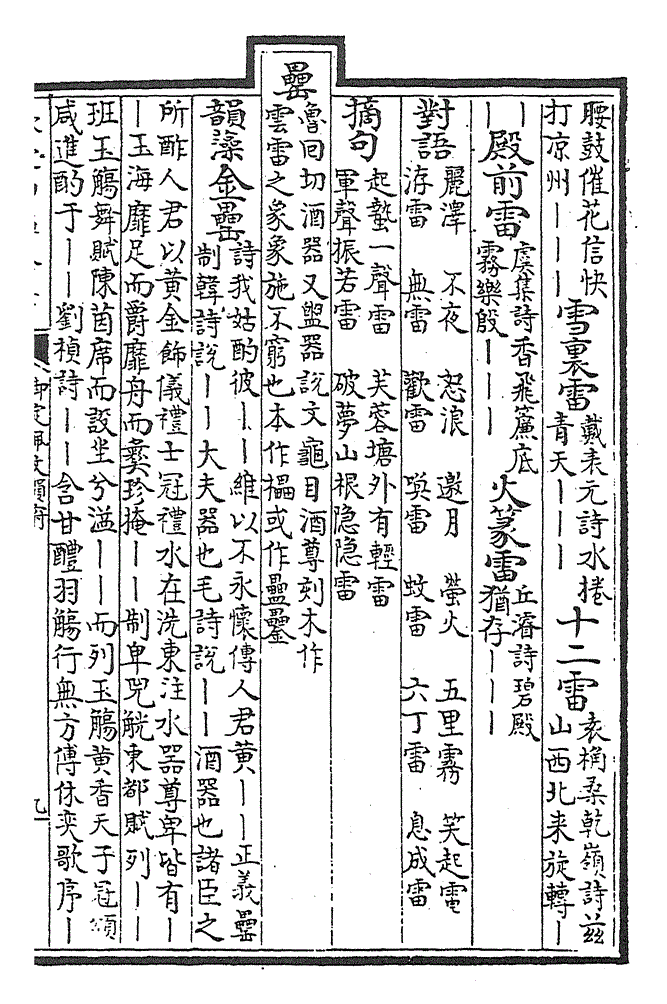 腰鼓催花信快
打凉州｜｜｜
雪裏雷
戴表元詩水捲
青天｜｜｜
十二雷
袁桷桑乾嶺詩茲
山西北来旋轉｜
｜｜
殿前雷
虞集詩香飛簾底
霧樂殷｜｜｜
火篆雷
丘濬詩碧殿
猶存｜｜｜
對語
麗澤　不夜　怒浪　邀月　螢火　五里霧　笑起電
洊雷　無雷　歡雷　喚雷　蚊雷　六丁雷　息成雷
摘句
起蟄一聲雷　芙蓉塘外有輕雷
軍聲振若雷　破夢山根隐隐雷
罍
魯回切酒器又盥器說文龜目酒尊刻木作
雲雷之象象施不窮也本作櫑或作畾鑘
韻藻
金罍
詩我姑酌彼｜｜維以不永懷傳人君黄｜｜正義罍
制韓詩說｜｜大夫器也毛詩說｜｜酒器也諸臣之
所酢人君以黄金飾儀禮士冠禮水在洗東注水器尊卑皆有｜
｜玉海靡足而爵靡舟而彛珍掩｜｜制卑兕觥東都賦列｜｜
班玉觴舞賦陳茵席而設坐兮溢｜｜而列玉觴黄香天子冠頌
咸進酌于｜｜劉楨詩｜｜含甘醴羽觴行無方傅休奕歌序｜
御定佩文韻府